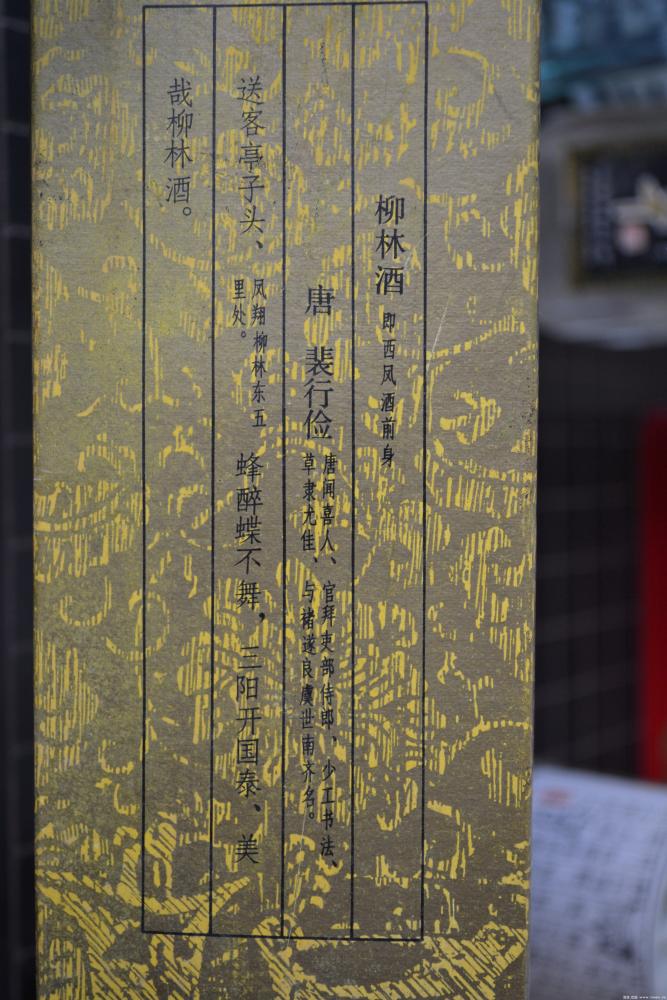 柳林酒 即西凤酒前身
唐 裴行俭 唐闻喜人、官拜吏部侍郎，少工书法、
草隶尤佳、与褚遂良虞世南齐名。
送客亭子头、凤翔柳林东五
里处。
蜂醉蝶不舞，三阳开国泰、美
哉柳林酒。